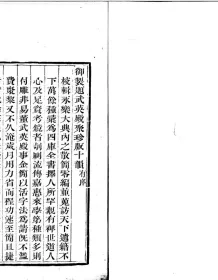 御製題武英殿聚珍版十韻有序
校輯永樂大典內之散簡零編並蒐訪天下遺籍不
下萬餘種彙為四庫全書擇人所罕覯有裨世道人
心及足資考鏡者剞劂流傳嘉惠來學第種類多則
付雕非易董武英殿事金簡以活字法為請既不濫
費棗梨又不久淹歲月用力省而程功速至簡且捷